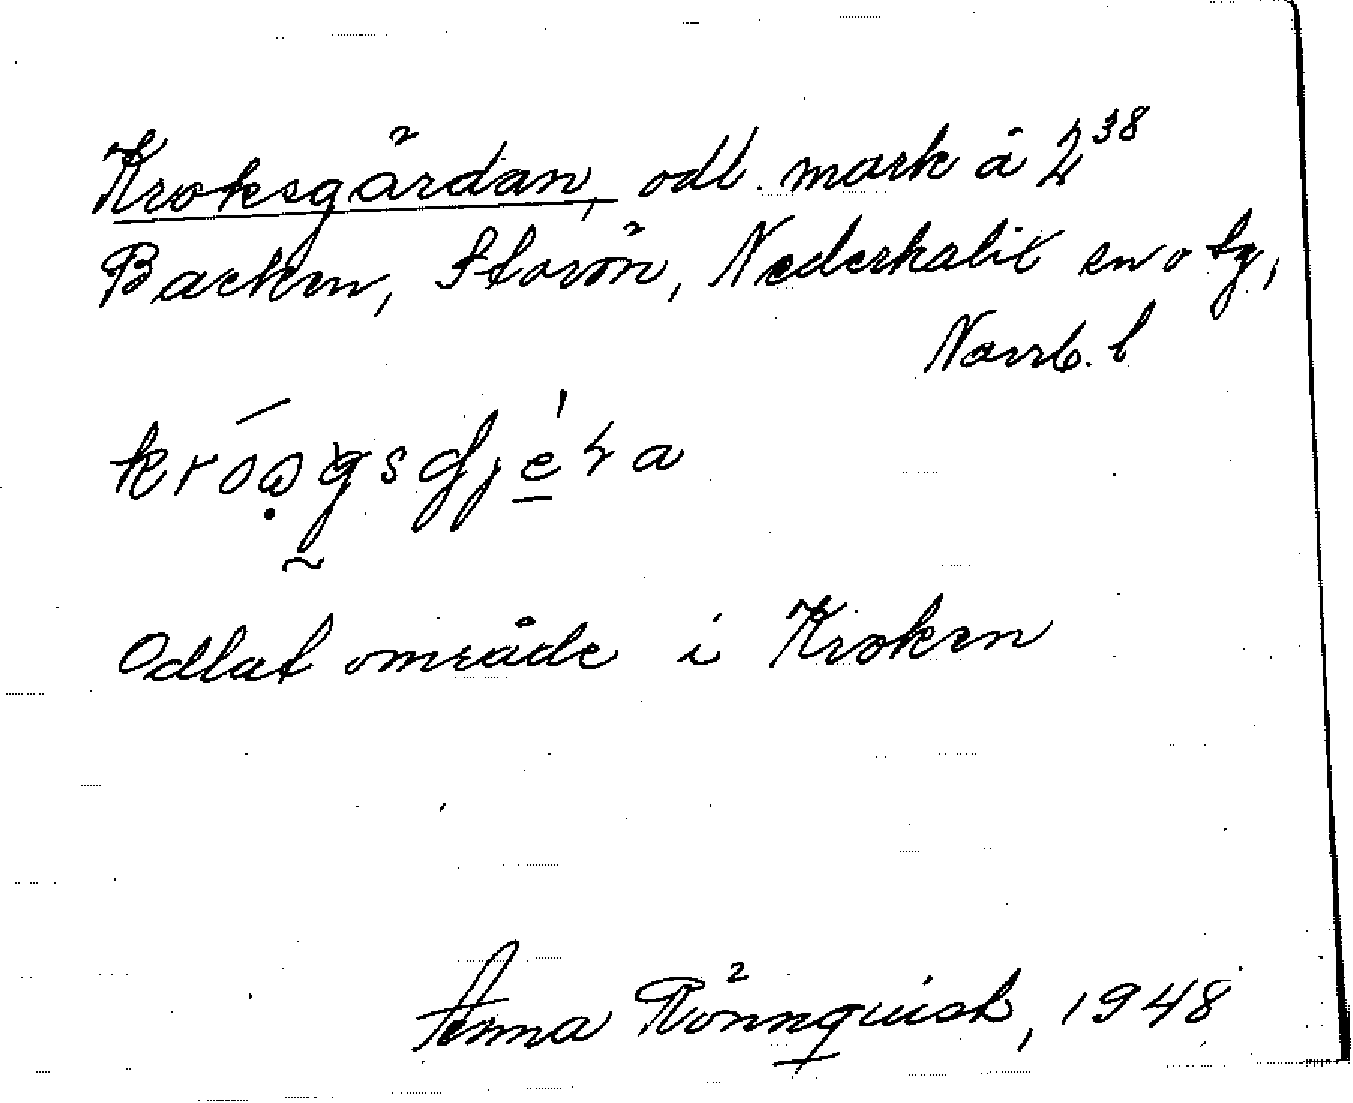 Kroksgärdan, odl. mark å 2³⁸
Backen, Storön, Nederkalix sn o tg,
Norrb. l
Odlat område i Kroken
Anna Rönnquist, 1948